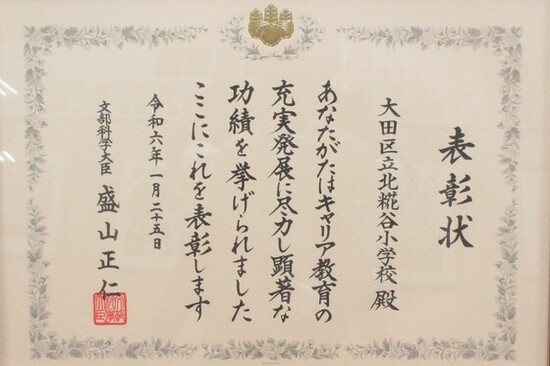 表彰状
大田区立北糀谷小学校 殿
あなたがたはキャリア教育の
充実発展に尽力し顕著な
功績を挙げられました
ここにこれを表彰します
令和六年一月二十五日
文部科学大臣 盛山正仁